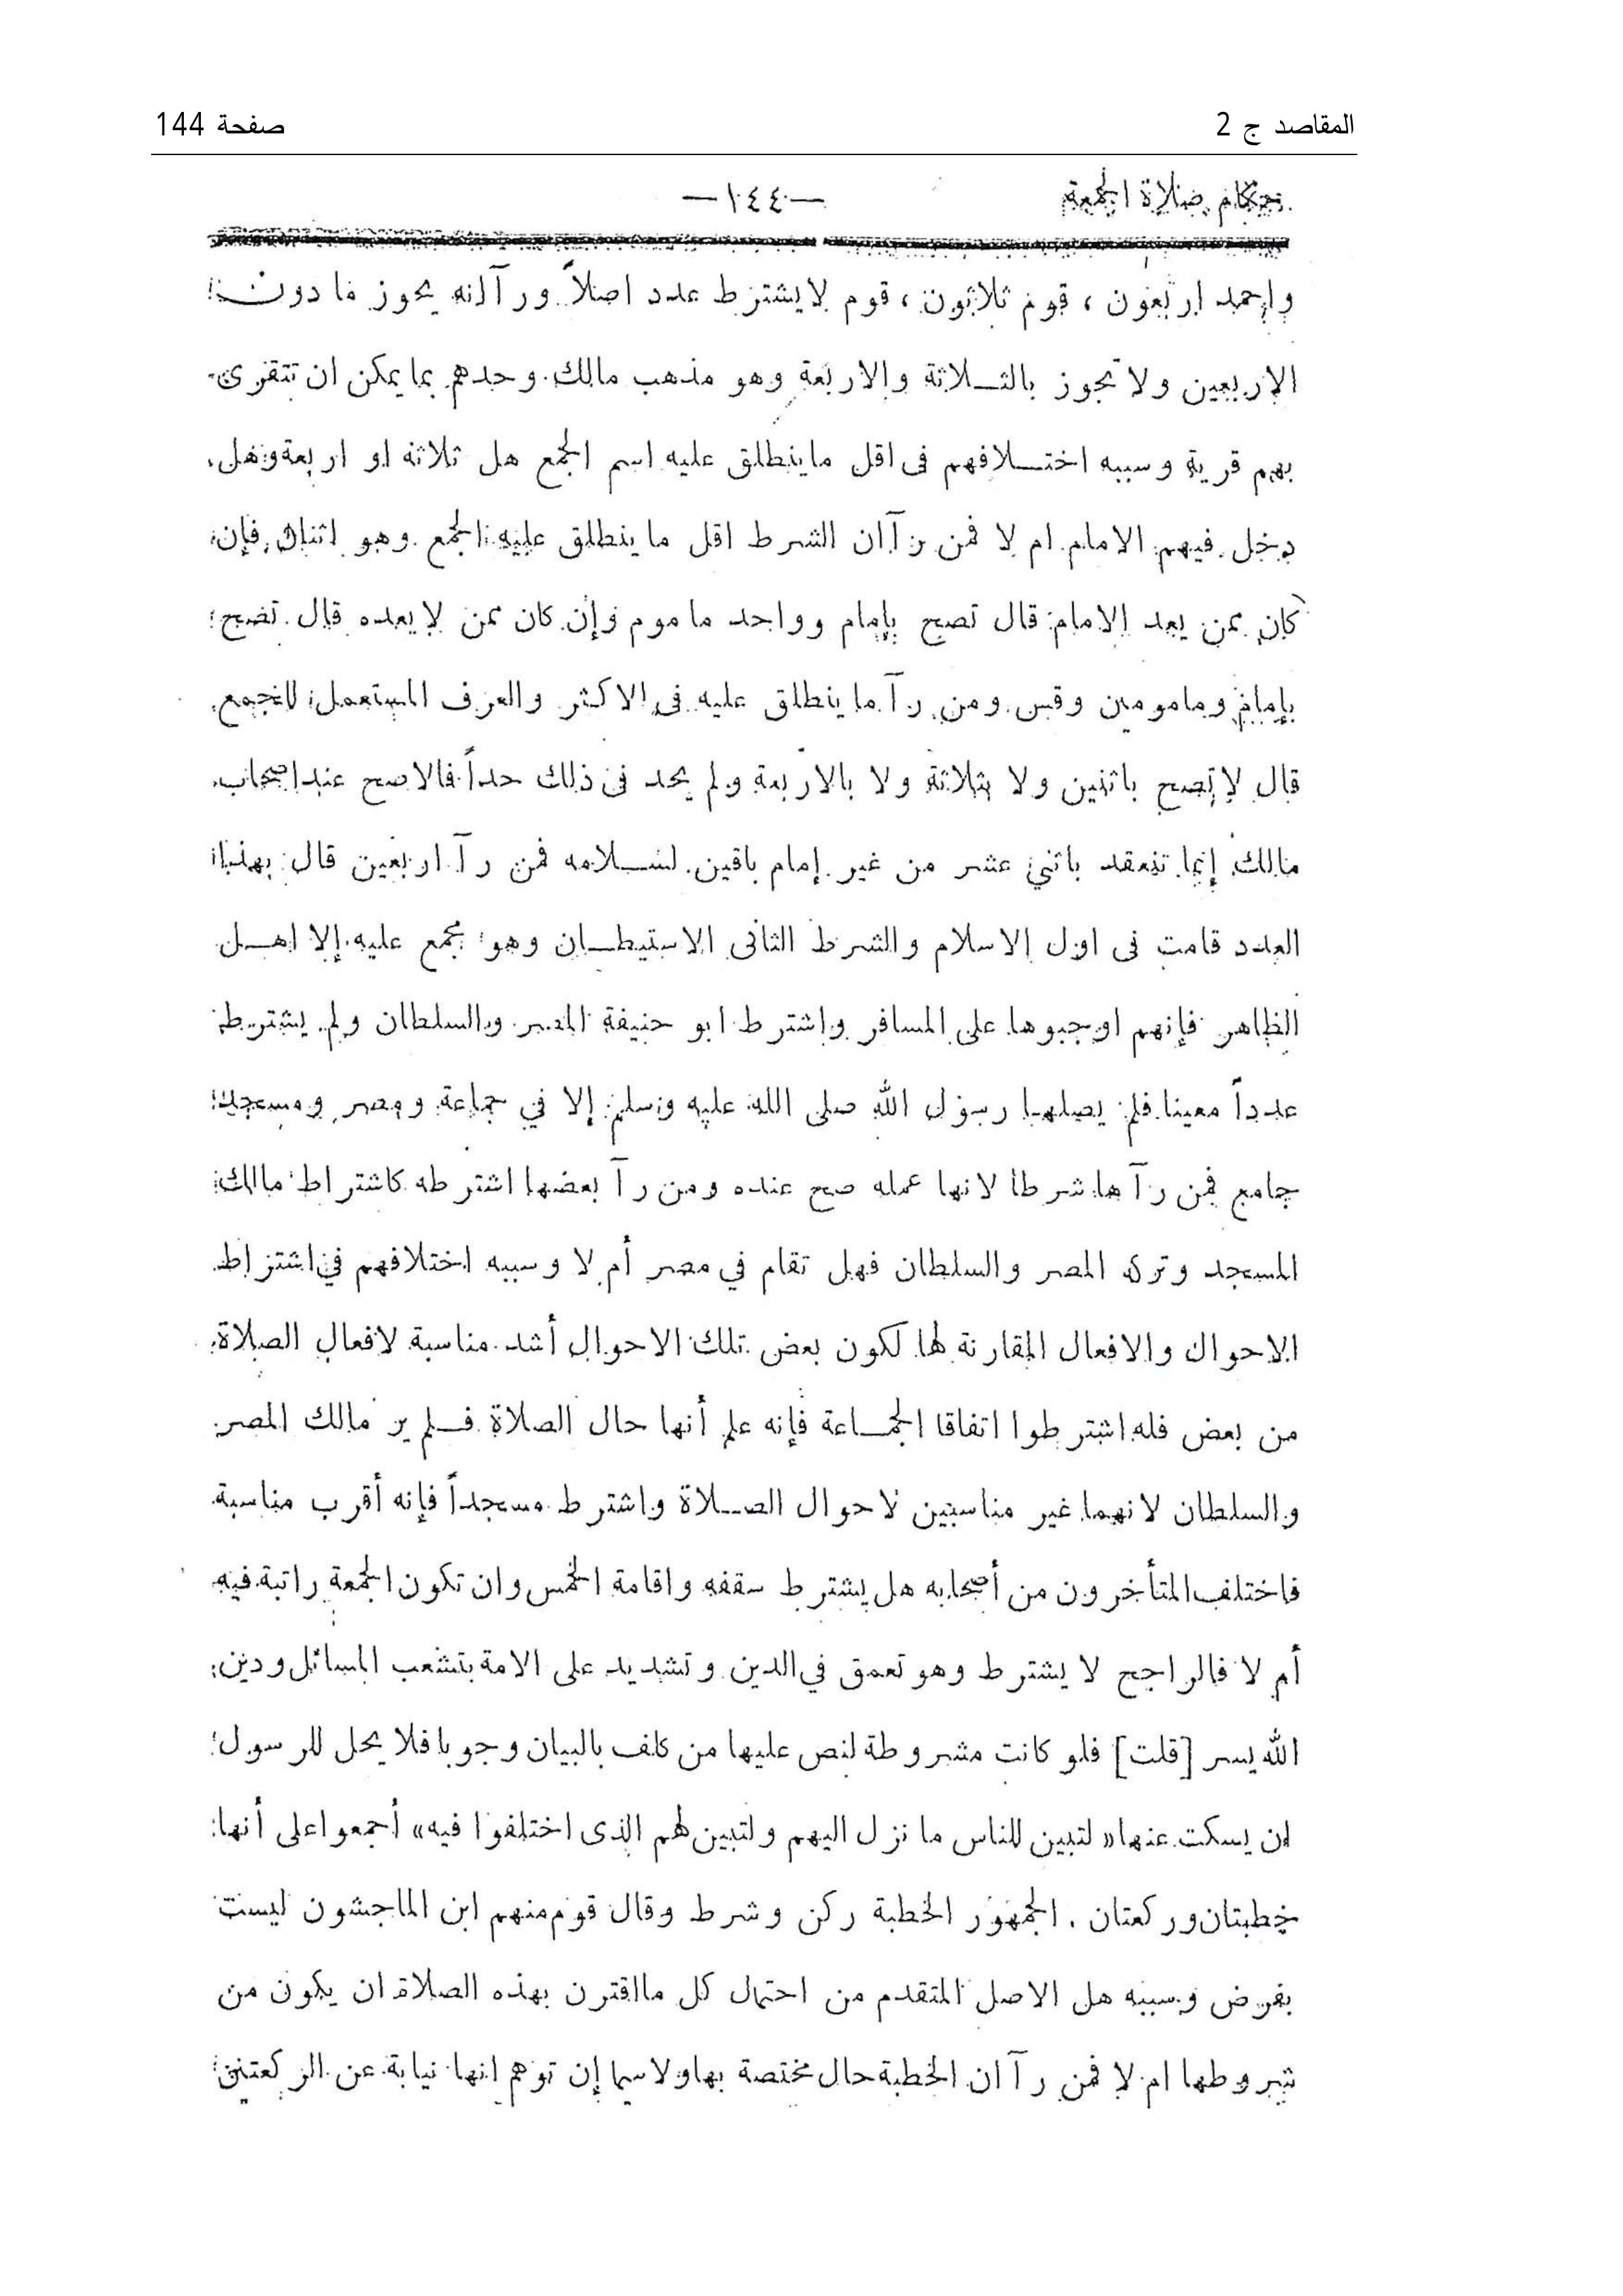 المقاصد ج 2
صفحة 144
احكام صلاة الجمعة
—١٤٤—
واحمد اربعون ، قوم ثلاثون ، قوم لا يشترط عدد اصلاً ورآ انه يجوز فما دون
الاربعين ولا تجوز بالثلاثة والاربعة وهو مذهب مالك وحدهم بما يمكن ان تتقرى
بهم قرية وسببه اختلافهم فى اقل ما ينطلق عليه اسم الجمع هل ثلاثه او اربعة وهل
دخل فيهم الامام ام لا فمن رآ ان الشرط اقل ما ينطلق عليه الجمع وهو اثنان فإن
كان ممن يعد الامام قال تصح بإمام وواحد ماموم وإن كان ممن لا يعده قال تصح
بإمام ومامومين وقس ومن رآ ما ينطلق عليه فى الاكثر والعرف المستعمل للجمع
قال لا تصح باثنين ولا بثلاثة ولا بالاربعة ولم يحد فى ذلك حداً فالاصح عند اصحاب
مالك إنما تنعقد باثني عشر من غير إمام باقين لسلامه فمن رآ اربعين قال بهذا
العدد قامت فى اول الاسلام والشرط الثانى الاستيطان وهو مجمع عليه إلا اهل
الظاهر فإنهم اوجبوها على المسافر واشترط ابو حنيفة المصر والسلطان ولم يشترط
عدداً معينا فلم يصلها رسول الله صلى الله عليه وسلم إلا في جماعة ومصر ومسجد
جامع فمن رآها شرطا لانها عمله صح عنده ومن رآ بعضها اشترطه كاشتراط مالك
المسجد وترك المصر والسلطان فهل تقام في مصر أم لا وسببه اختلافهم في اشتراط
الاحوال والافعال المقارنة لها لكون بعض تلك الاحوال أشد مناسبة لافعال الصلاة
من بعض فله اشترطوا اتفاقا الجماعة فإنه علم أنها حال الصلاة فلم ير مالك المصر
والسلطان لانهما غير مناسبين لاحوال الصلاة واشترط مسجداً فإنه أقرب مناسبة
فاختلف المتأخرون من أصحابه هل يشترط سقفه واقامة الخمس وان تكون الجمعة راتبة فيه
أم لا فالراجح لا يشترط وهو تعمق في الدين وتشديد على الامة بتشعب المسائل ودين
الله يسر [قلت] فلو كانت مشروطة لنص عليها من كلف بالبيان وجوبا فلا يحل للرسول
ان يسكت عنها «لتبين للناس ما نزل اليهم ولتبين لهم الذى اختلفوا فيه» أجمعوا على أنها
خطبتان وركعتان . الجمهور الخطبة ركن وشرط وقال قوم منهم ابن الماجشون ليست
بفرض وسببه هل الاصل المتقدم من احتمال كل ما اقترن بهذه الصلاة ان يكون من
شروطها ام لا فمن رآ ان الخطبة حال مختصة بها ولا سيما إن توهم انها نيابة عن الركعتين